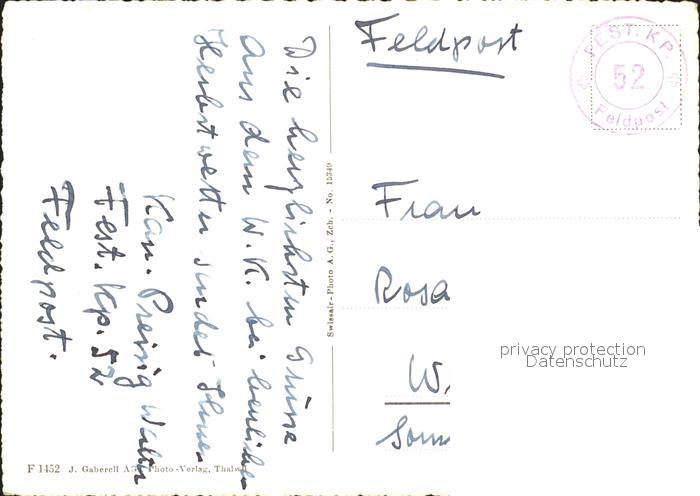 Feldpost
FEST. KP.
52
Feldpost
Die herzlichsten Grüsse
aus dem W.K. bei herrlichem
Herbstwetter sendet Ihnen
Kan. Preisig Walter
Fest. Kp. 52
Feldpost.
Frau
Rosa
W.
Somm
privacy protection
Datenschutz
Swissair-Photo A. G., Zch. - No. 15349
F 1452 J. Gaberell A.G. Photo-Verlag, Thalwil